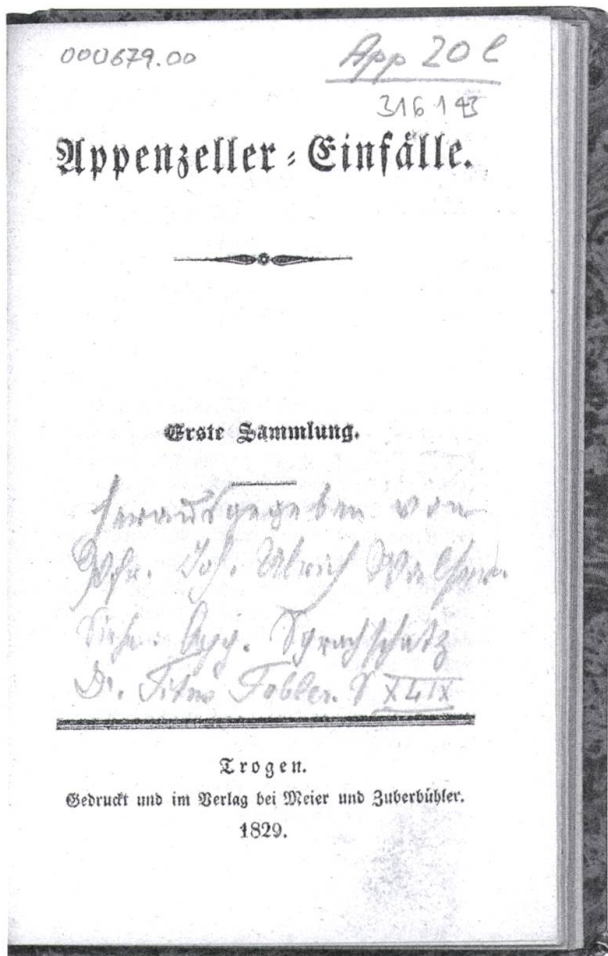 000679.00
App 20 l
316 143
Appenzeller-Einfälle.
Erste Sammlung.
herausgegeben von
Joh. Ulrich Walser.
Siehe App. Sprachschatz
Dr. Titus Tobler. S XLIX
Trogen.
Gedruckt und im Verlag bei Meier und Zuberbühler.
1829.